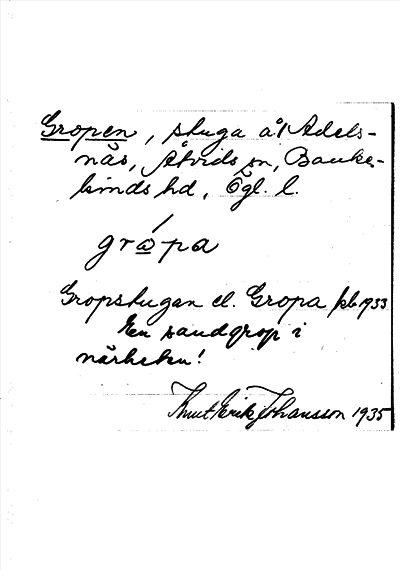 Gropen, stuga å Adels-
näs, Åtvids sn, Banke-
kinds hd, Ögl. l.
grápa
Gropstugan el. Gropa jkb 1933
En sandgrop i
närheten!
Knut Erik Johansson 1935